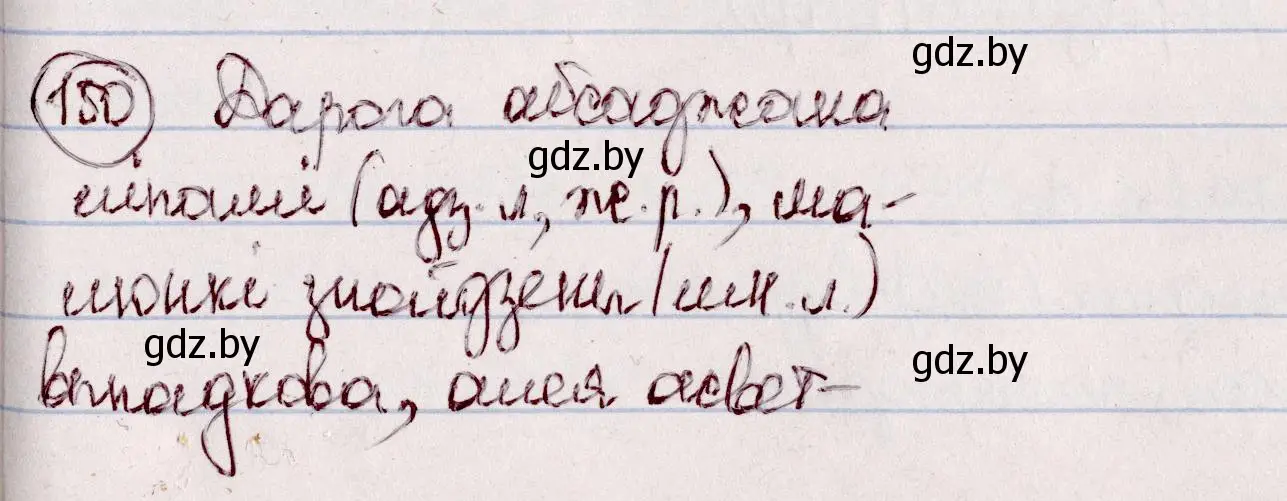 150 Дарога абсаджана gdz.by
ліпамі (адз. л, ж. р.), ма- gdz.by
люнкі знойдзены (мн. л.)
выпадкова, алея асвет- gdz.by gdz.by